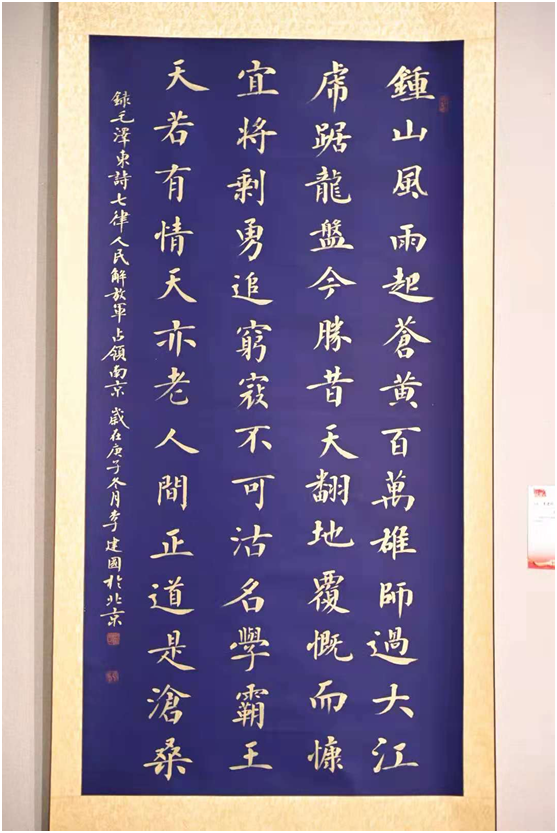 鍾山風雨起蒼黄百萬雄師過大江
虎踞龍盤今勝昔天翻地覆慨而慷
宜將剩勇追窮寇不可沽名學霸王
天若有情天亦老人間正道是滄桑
録毛澤東詩七律人民解放軍占領南京 歲在庚子冬月李建國於北京